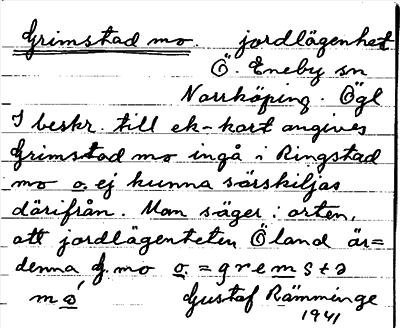 Grimstad mo. jordlägenhet
Ö. Eneby sn
Norrköping. Ögl
I beskr. till ek-kart angives
Grimstad mo ingå i Ringstad
mo o. ej kunna särskiljas
därifrån. Man säger i orten,
att jordlägenheten Öland är=
denna G. mo o. = gremsta
mo
Gustaf Rämminge
1941